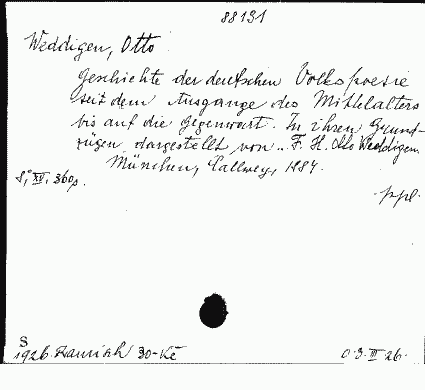 88131
Weddigen, Otto
Geschichte der deutschen Volkspoesie
seit dem Ausgange des Mittelalters
bis auf die Gegenwart. In ihren Grund-
zügen dargestellt von .. F. H. Otto Weddigen.
München, Callwey, 1884.
8°, XII, 360 p.
ppl.
S
1926. 30-Kč
03. III 26.